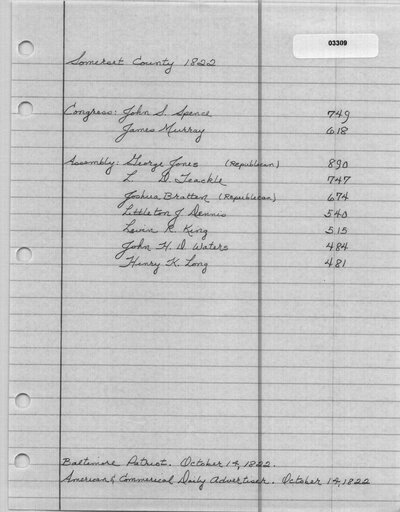 03309
Somerset County 1822
Congress: John S. Spence 749
James Murray 618
Assembly: George Jones (Republican) 890
L. D. Teackle 747
Joshua Bratten (Republican) 674
Littleton J Dennis 540
Levin R. King 515
John H. D. Waters 484
Henry K. Long 481
Baltimore Patriot. October 14, 1822.
American & Commerical Daily Advertiser. October 14, 1822